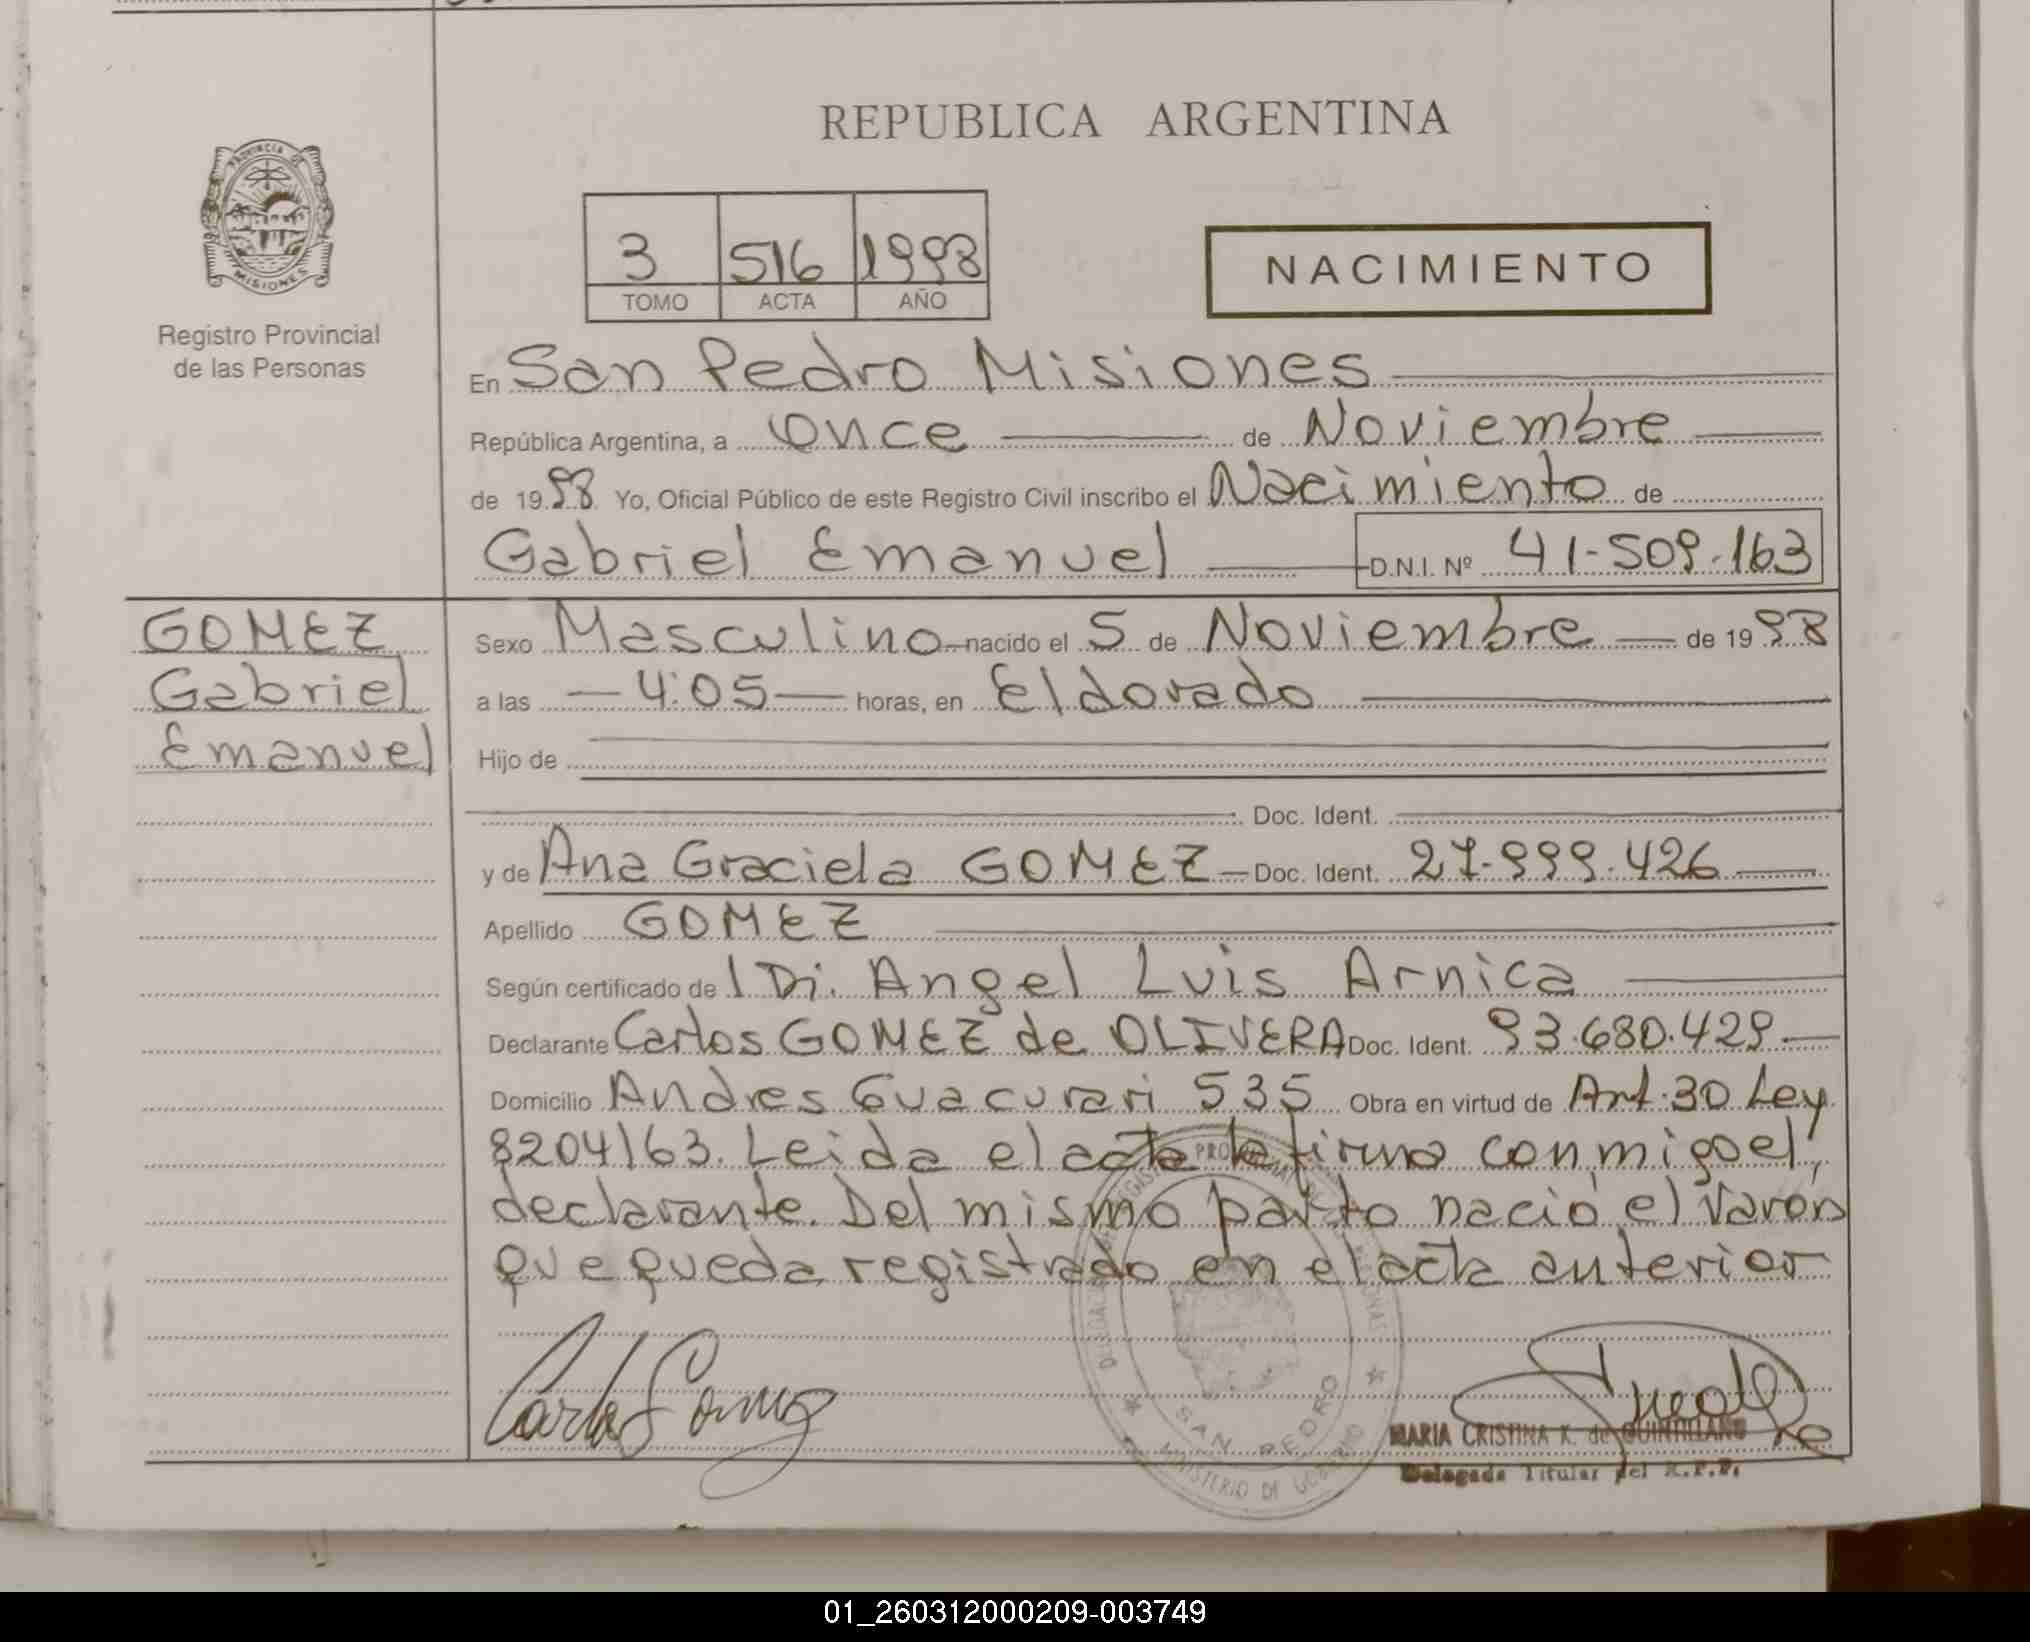 REPUBLICA ARGENTINA
PROVINCIA DE
MISIONES
Registro Provincial
de las Personas
3 516 1998
TOMO ACTA AÑO
NACIMIENTO
En San Pedro Misiones
República Argentina, a once de Noviembre
de 1998 Yo, Oficial Público de este Registro Civil inscribo el Nacimiento de
Gabriel Emanuel D.N.I. Nº 41-509.163
GOMEZ
Gabriel
Emanuel
Sexo Masculino nacido el 5 de Noviembre de 1998
a las 4:05 horas, en Eldorado
Hijo de
Doc. Ident.
y de Ana Graciela GOMEZ Doc. Ident. 27.999.426
Apellido GOMEZ
Según certificado de l Di. Angel Luis Arnica
Declarante Carlos GOMEZ de OLIVERA Doc. Ident. 93.680.429
Domicilio Andres Guacurari 535 Obra en virtud de Art. 30 Ley
8204/63. Leida el acta la firma conmigo el
declarante. Del mismo parto nació el varón
que queda registrado en el acta anterior
Carlos Gomez
SAN PEDRO
MINISTERIO DE GOBIERNO
MARIA CRISTINA K. de QUINTILLANO
Delegada Titular del R.P.P.
01_260312000209-003749